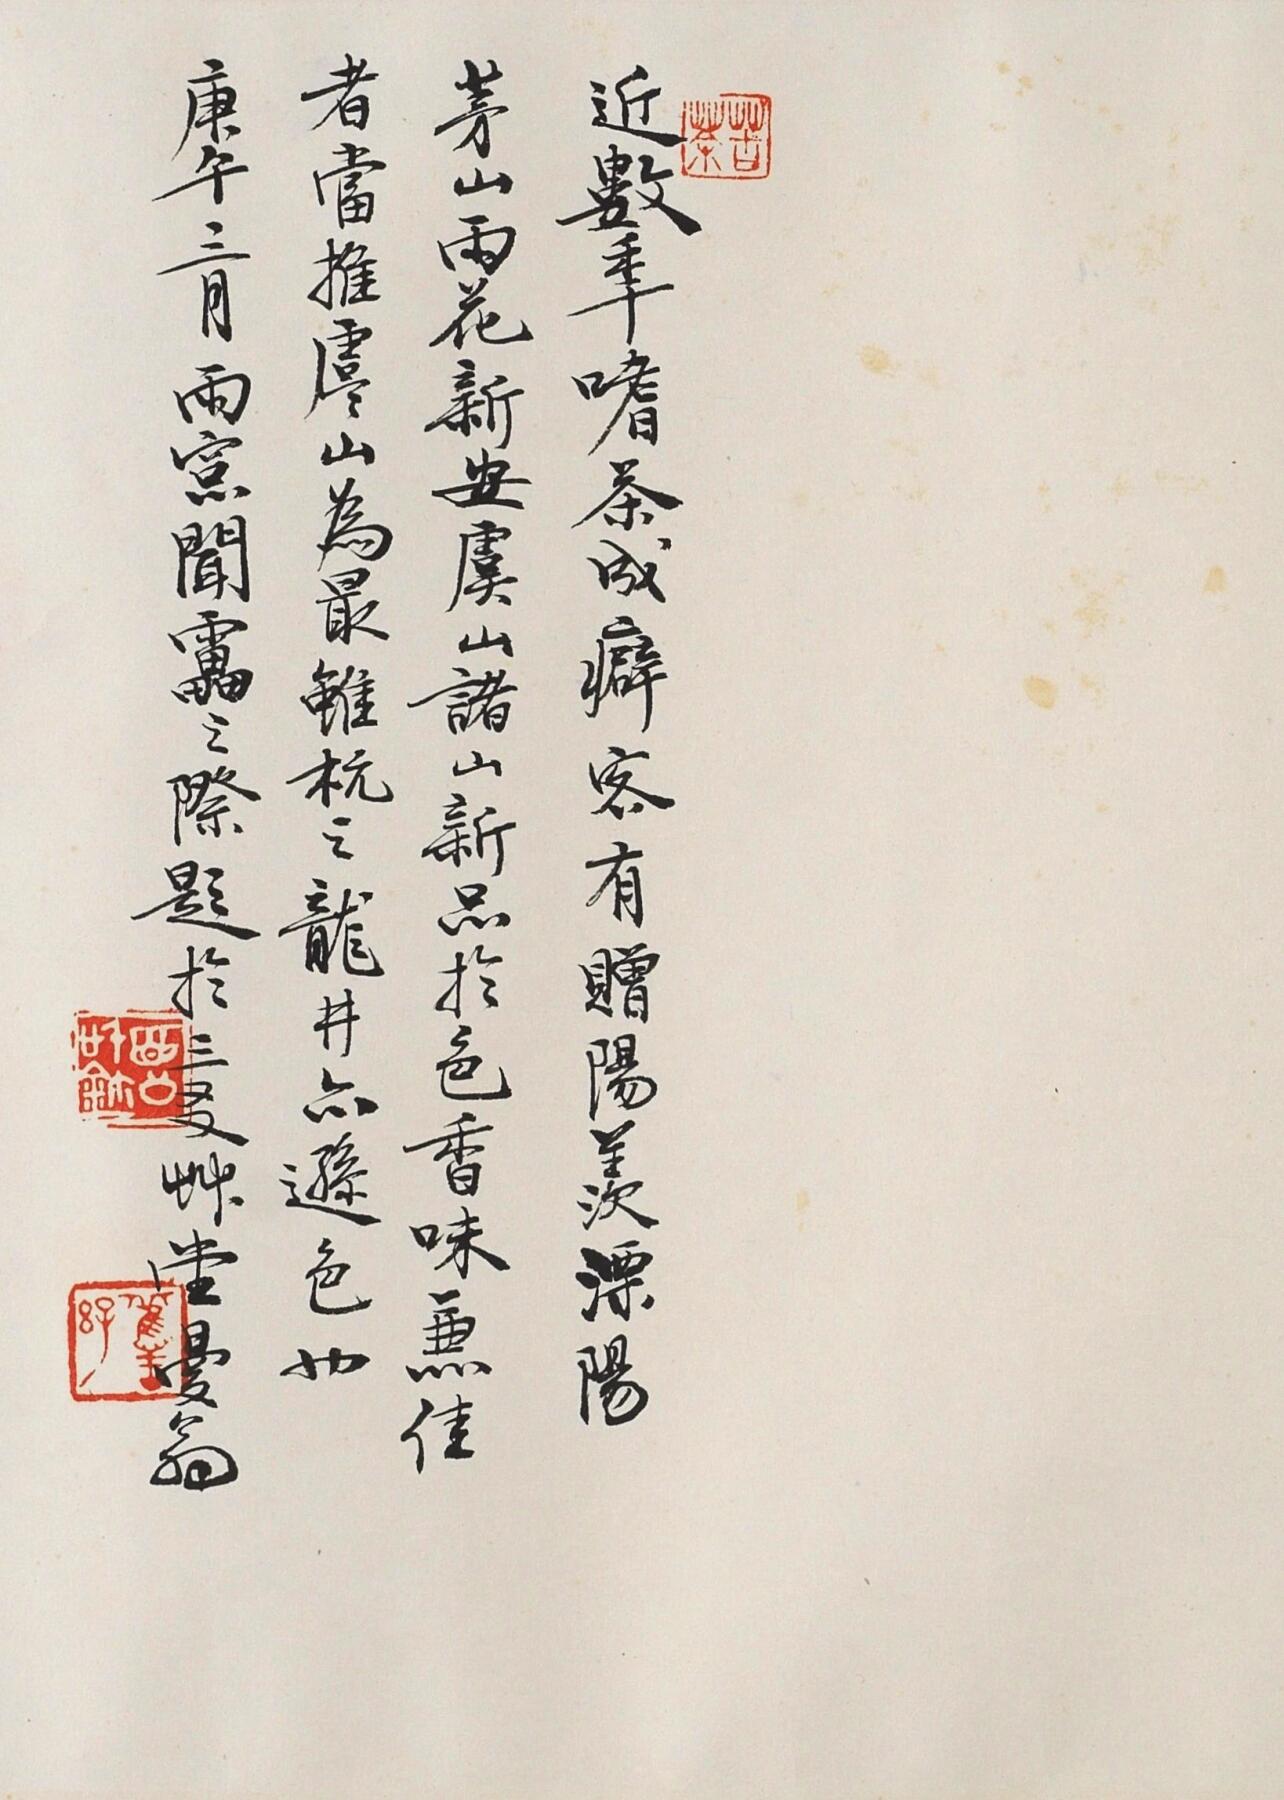 近數年嗜茶成癖客有贈陽羨溧陽
茅山雨花新安虞山諸山新品於色香味兼佳
者當推虞山為最雖杭之龍井亦遜色也
庚午三月雨窓聞靁之際題於三叉艸堂曼翁
苦茶